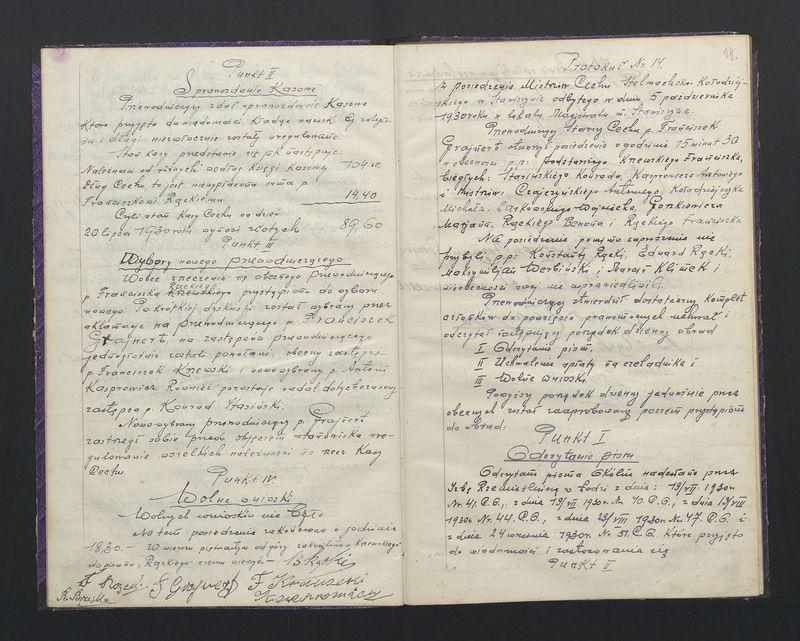 Punkt II
Sprawozdanie Kasowe
Przewodniczący zdał sprawozdanie Kasowe
które przyjęto do wiadomości kładąc nacisk by zaległo-
ści i długi niezwłocznie zostały uregulowane.
Stan kasy przedstawia się jak następuje:
Należności od różnych według księgi Kasowej 104 zł.
Dług Cechu to jest niewypłacona suma p.
Franciszkowi Rząskiemu 14,40
Czyli stan Kasy Cechu na dzień
20 lipca 1930 roku wynosi złotych 89,60
Punkt III
Wybory nowego przewodniczącego
Wobec zrzeczenia się obecnego Przewodniczącego
p. Franciszka Knewskiego przystąpiono do wyboru
nowego. Po krótkiej dyskusji został wybrany przez
aklamację na przewodniczącego p. Franciszek
Grajnert, na zastępców przewodniczącego
jednogłośnie zostali powołani: obecny zastępca
p. Franciszek Knewski i nowowybrany p. Antoni
Kasprowicz. Również pozostaje nadal dotychczasowy
zastępca p. Konrad Stasiński.
Nowowybrany przewodniczący p. Grajnert
zastrzegł sobie przed objęciem stanowiska ure-
gulowanie wszelkich należności na rzecz Kasy
Cechu.
Punkt IV.
Wolne wnioski
Wolnych wniosków nie było.
Na tem posiedzenie zakończono o godzinie
18,30.— W wierszu piętnastym od góry zakreślono „Knewskiego"
dopisano „Rząskiego"
F Grajnert
14.
Protokuł Nr. 14.
Z posiedzenia Mistrzów Cechu Stelmachsko-Kołodziej-
skiego w Stawiszynie odbytego w dniu 5 października
1930 roku w lokalu Magistratu m. Stawiszyna.
Przewodniczący Starszy Cechu p. Franciszek
Grajnert otworzył posiedzenie o godzinie 15 minut 30
w obecności p.p: Podstarszego Knewskiego Franciszka,
biegłych: Stasińskiego Konrada, Kasprowicza Antoniego
i Mistrzów: Czajczyńskiego Antoniego, Kołodziejczyka
Michała, Laskowskiego Wojciecha,
Marjana, Rząskiego Benona i Rząskiego Franciszka
Na posiedzenie pomimo zaproszenia nie
przybyli p.p: Konstanty Rząski, Edward Rząski,
Maksymiljan Werbiński i Klimek i
nieobecności swej nie usprawiedliwili.
Przewodniczący stwierdził dostateczny komplet
członków do powzięcia prawomocnych uchwał i
odczytał następujący porządek dzienny obrad
I Odczytanie pism,
II Uchwalenie opłaty na czeladnika i
III Wolne wnioski.
Powyższy porządek dzienny jednomyślnie przez
obecnych został zaaprobowany poczem przystąpiono
do obrad:
Punkt I
Odczytanie pism
Odczytano pisma Okólne nadesłane przez
Izbę Rzemieślniczą w Łodzi z dnia: 19/VII 1930r.
Nr. 41. C.G., z dnia 19/VII 1930r. Nr 40 C.G., z dnia 13/VIII
1930r. Nr. 44. C.G., z dnia 29/VIII 1930r. Nr. 47. C.G. i
z dnia 24 września 1930r. Nr. 51. C.G. które przyjęto
do wiadomości i zastosowania się
Punkt II